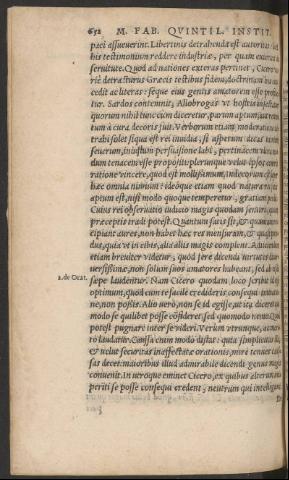 652 M. FAB. QVINTIL. INSTIT.
paci assueuerint. Libertinis detrahenda est autoritas: licet
his testimonium reddere industriæ, per quam exierint à
seruitute. Quod ad nationes exteras pertinet, Cicero ua
riè detracturus Græcis testibus fidem, doctrinam his con
cedit ac literas: seque eius gentis amatorem esse profite
tur. Sardos contemnit, Allobrogas ut hostis insectatur:
quorum nihil tunc cùm diceretur, parum aptum, aut remo
tum à cura decoris fuit. Verborum etiam moderatione de
trahi solet si qua est rei inuidia, si asperum dicas nimium
seuerum, iniustum persuasione labi, pertinacem ultra mo
dum tenacem esse propositi: plerunque uelut ipsos coneris
ratione uincere, quod est mollissimum, indecorum est super
hæc omnia nimium: ideóque etiam quod natura rei satis
aptum est, nisi modo quoque temperetur, gratiam perdit.
Cuius rei obseruatio iudicio magis quodam sentiri, quàm
præceptis tradi potest. Quantum satis sit, & quantum re
cipiant aures, non habet hæc res mensuram, & quasi pon
dus, quia ut in cibis, alia aliis magis complent. Adiiciendum
etiam breuiter uidetur, quòd ferè dicendi uirtutes di
uersissimæ, non solùm suos amatores habeant, sed ab iisdem
2. de Orat. sæpe laudentur. Nam Cicero quodam loco scribit id esse
optimum, quod cum te facilè credideris consequi imitatio
ne, non possis. Alio uerò, non se id egisse, ut ita diceret quo
modo se quilibet posse cōfideret, sed quomodo nemo. Quod
potest pugnare inter se uideri. Verùm utrunque, ac meri
tò laudatur. Caussa enim modò distat: quia simplicitas illa,
& uelut securitas inaffectatæ orationis, mirè tenues caus
sas decet: maioribus illud admirabile dicendi genus magis
conuenit. In utroque eminet Cicero, ex quibus alterum im
periti se posse consequi credent, neutrum qui intelligunt.